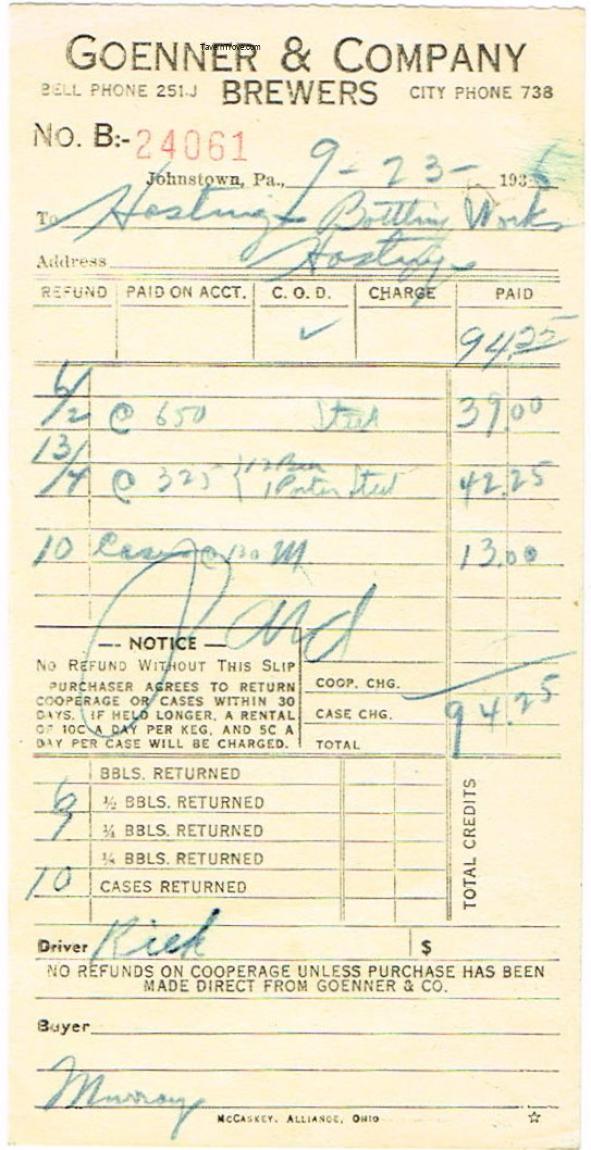 TavernTrove.com
GOENNER & COMPANY
BELL PHONE 251J BREWERS CITY PHONE 738
No. B:- 24061
Johnstown, Pa., 9-23- 193
To Hastings Bottling Works
Address Hastings
REFUND PAID ON ACCT. C. O. D. CHARGE PAID
✓ 94.25
6/2 @ 650 Steel 39.00
13/4 @ 325 { 12 Beer 1 Porter Steel 42.25
10 Cases @ 130 M 13.00
Paid
— NOTICE —
No Refund Without This Slip
PURCHASER AGREES TO RETURN
COOPERAGE OR CASES WITHIN 30
DAYS. IF HELD LONGER, A RENTAL
OF 10C A DAY PER KEG, AND 5C A
DAY PER CASE WILL BE CHARGED.
COOP. CHG.
CASE CHG. 94.25
TOTAL
BBLS. RETURNED
6 ½ BBLS. RETURNED
9 ¼ BBLS. RETURNED
⅛ BBLS. RETURNED
10 CASES RETURNED
TOTAL CREDITS
Driver $
NO REFUNDS ON COOPERAGE UNLESS PURCHASE HAS BEEN
MADE DIRECT FROM GOENNER & CO.
Buyer
Murray
McCaskey, Alliance, Ohio ☆